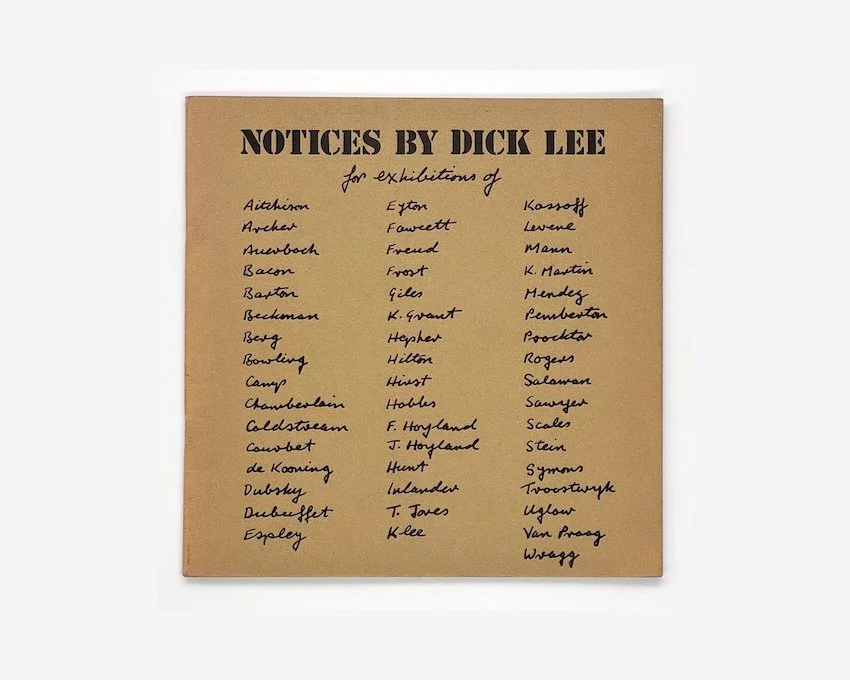 NOTICES BY DICK LEE
for exhibitions of
Aitchison
Archer
Auerbach
Bacon
Barton
Beckman
Berg
Bowling
Camp
Chamberlain
Coldstream
Courbet
de Kooning
Dubsky
Dubuffet
Espley
Eyton
Fawcett
Freud
Frost
Giles
K. Grant
Hepher
Hilton
Hirst
Hobbs
F. Hoyland
J. Hoyland
Hunt
Inlander
T. Jones
Klee
Kossoff
Levene
Mann
K. Martin
Mendez
Pemberton
Procktor
Rogers
Salaman
Sawyer
Scales
Stein
Symons
Troostwyk
Uglow
Van Praag
Wragg